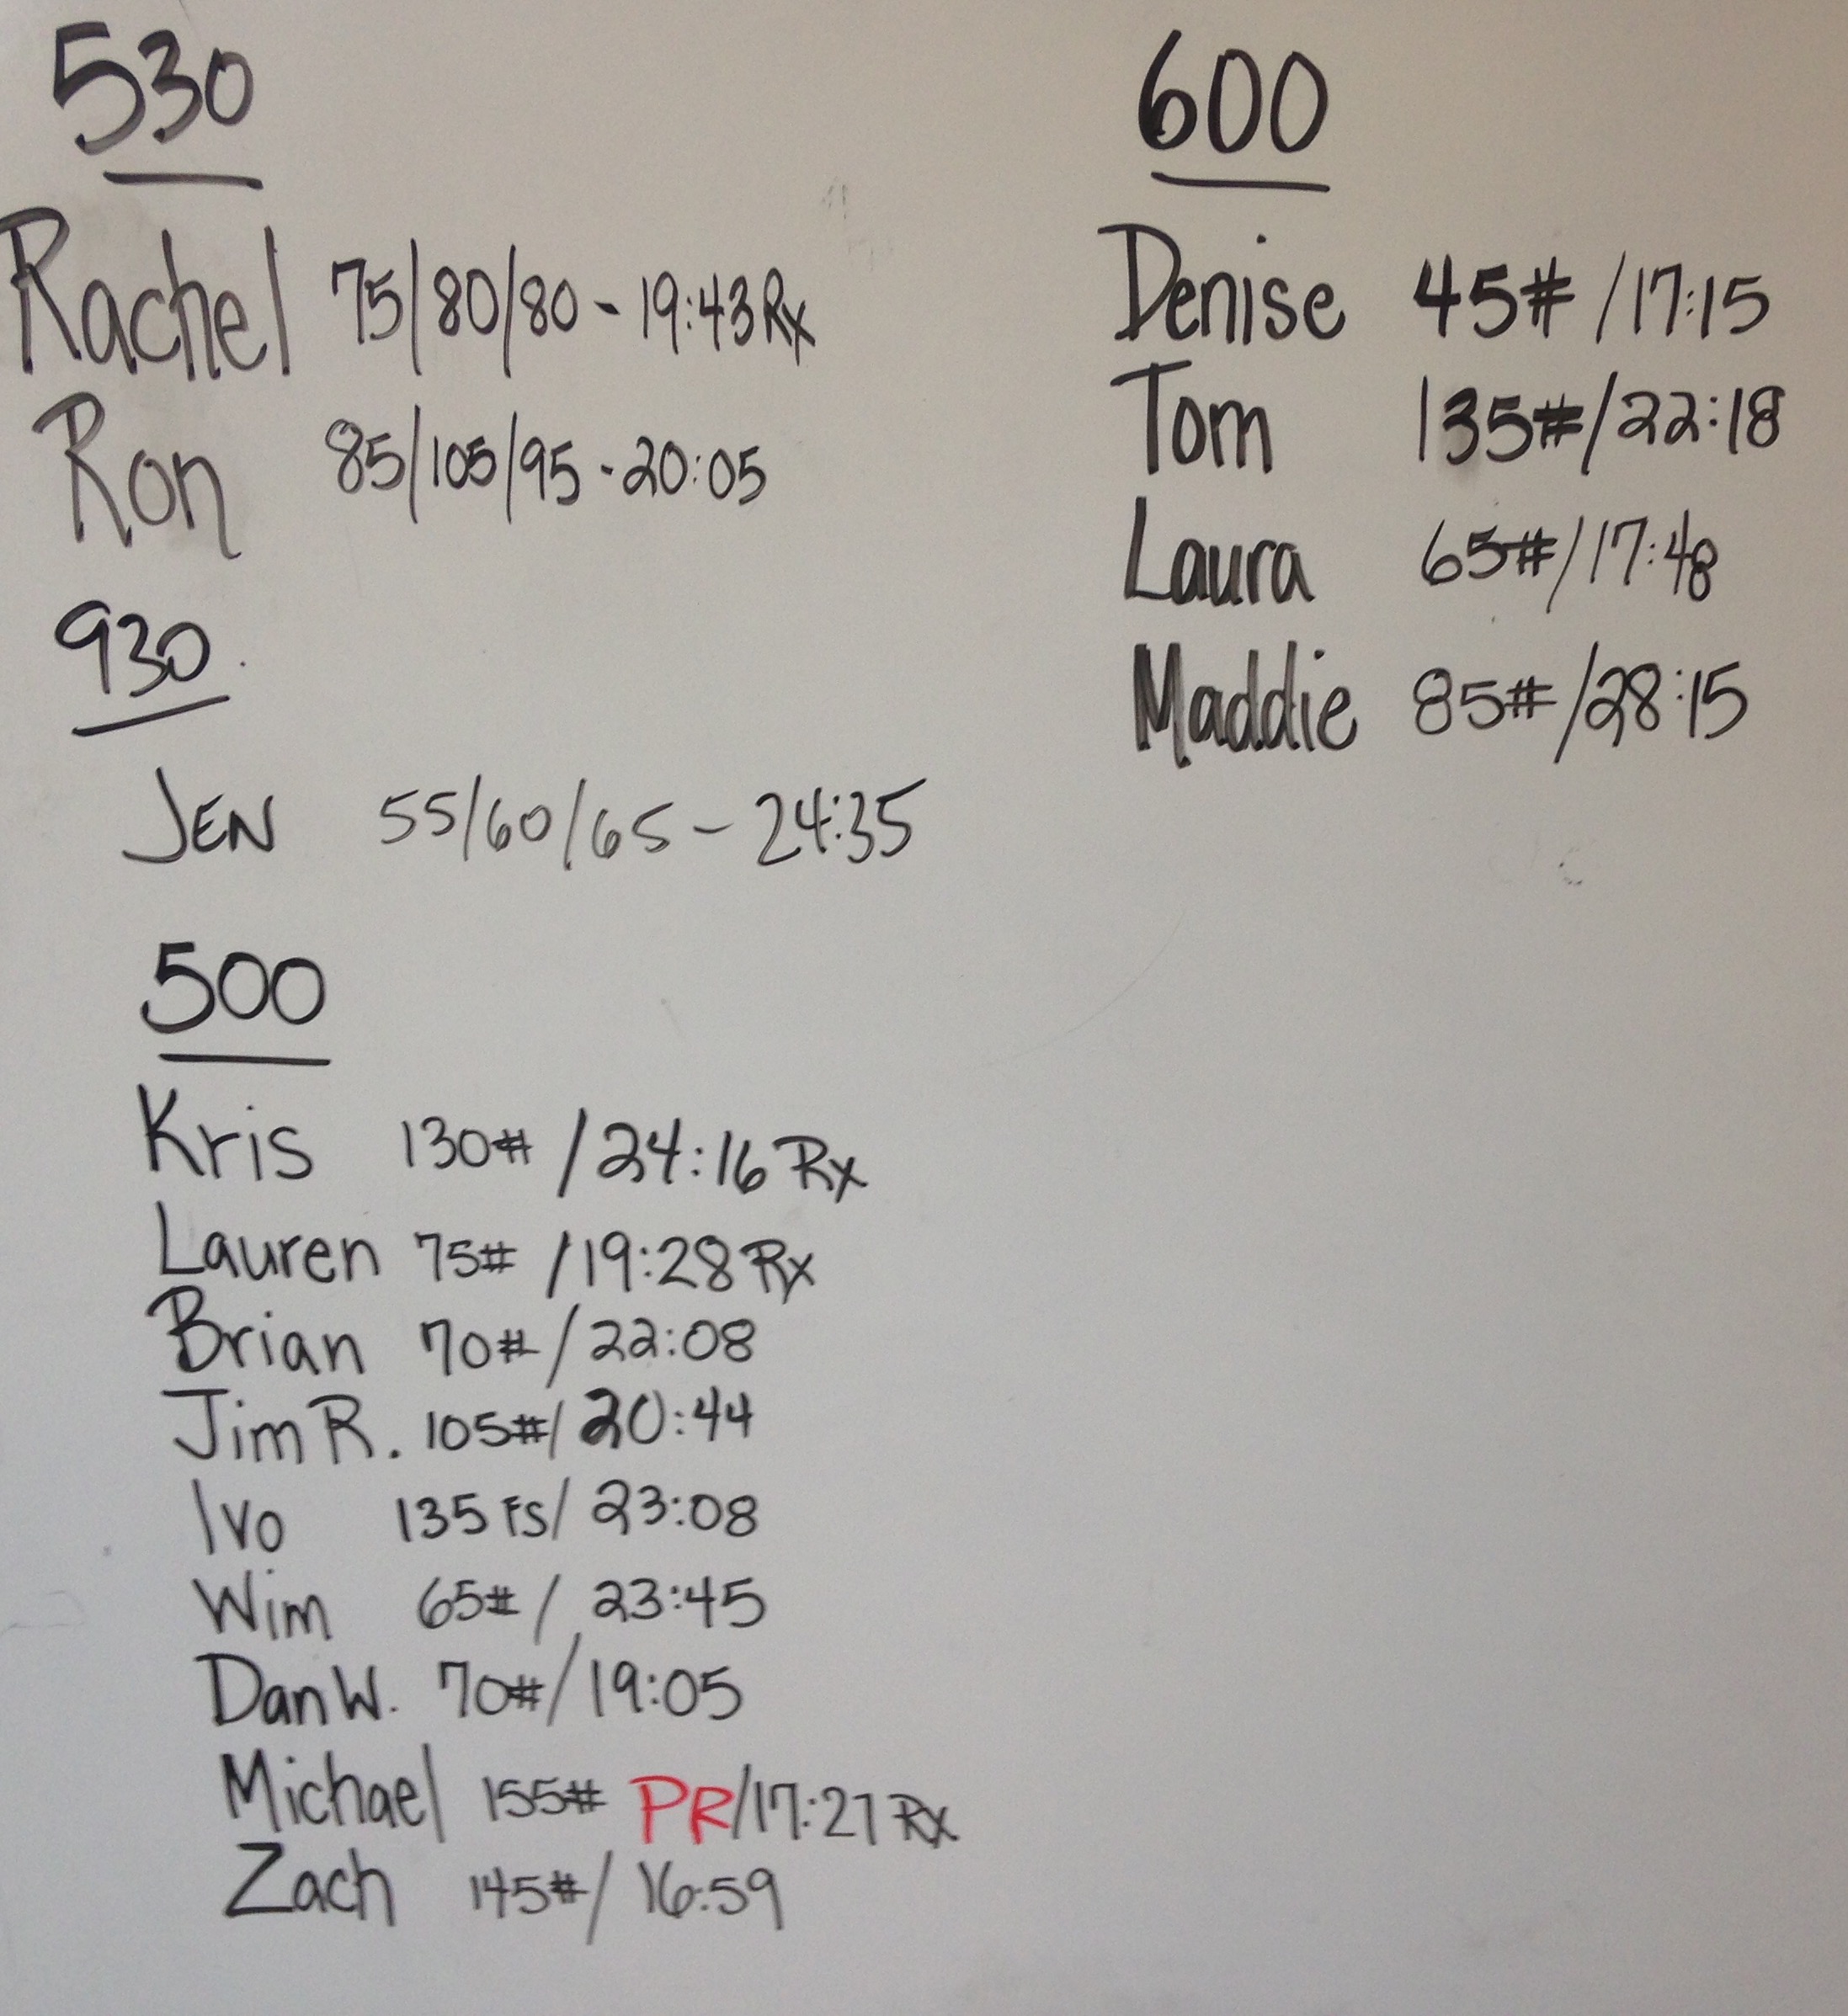 530
Rachel 75/80/80 - 19:43 Rx
Ron 85/105/95 - 20:05
930
JEN 55/60/65 - 24:35
500
Kris 130# / 24:16 Rx
Lauren 75# / 19:28 Rx
Brian 70# / 22:08
Jim R. 105# / 20:44
Ivo 135 FS / 23:08
Wim 65# / 23:45
Dan W. 70# / 19:05
Michael 155# PR / 17:27 Rx
Zach 145# / 16:59
600
Denise 45# / 17:15
Tom 135# / 22:18
Laura 65# / 17:48
Maddie 85# / 28:15